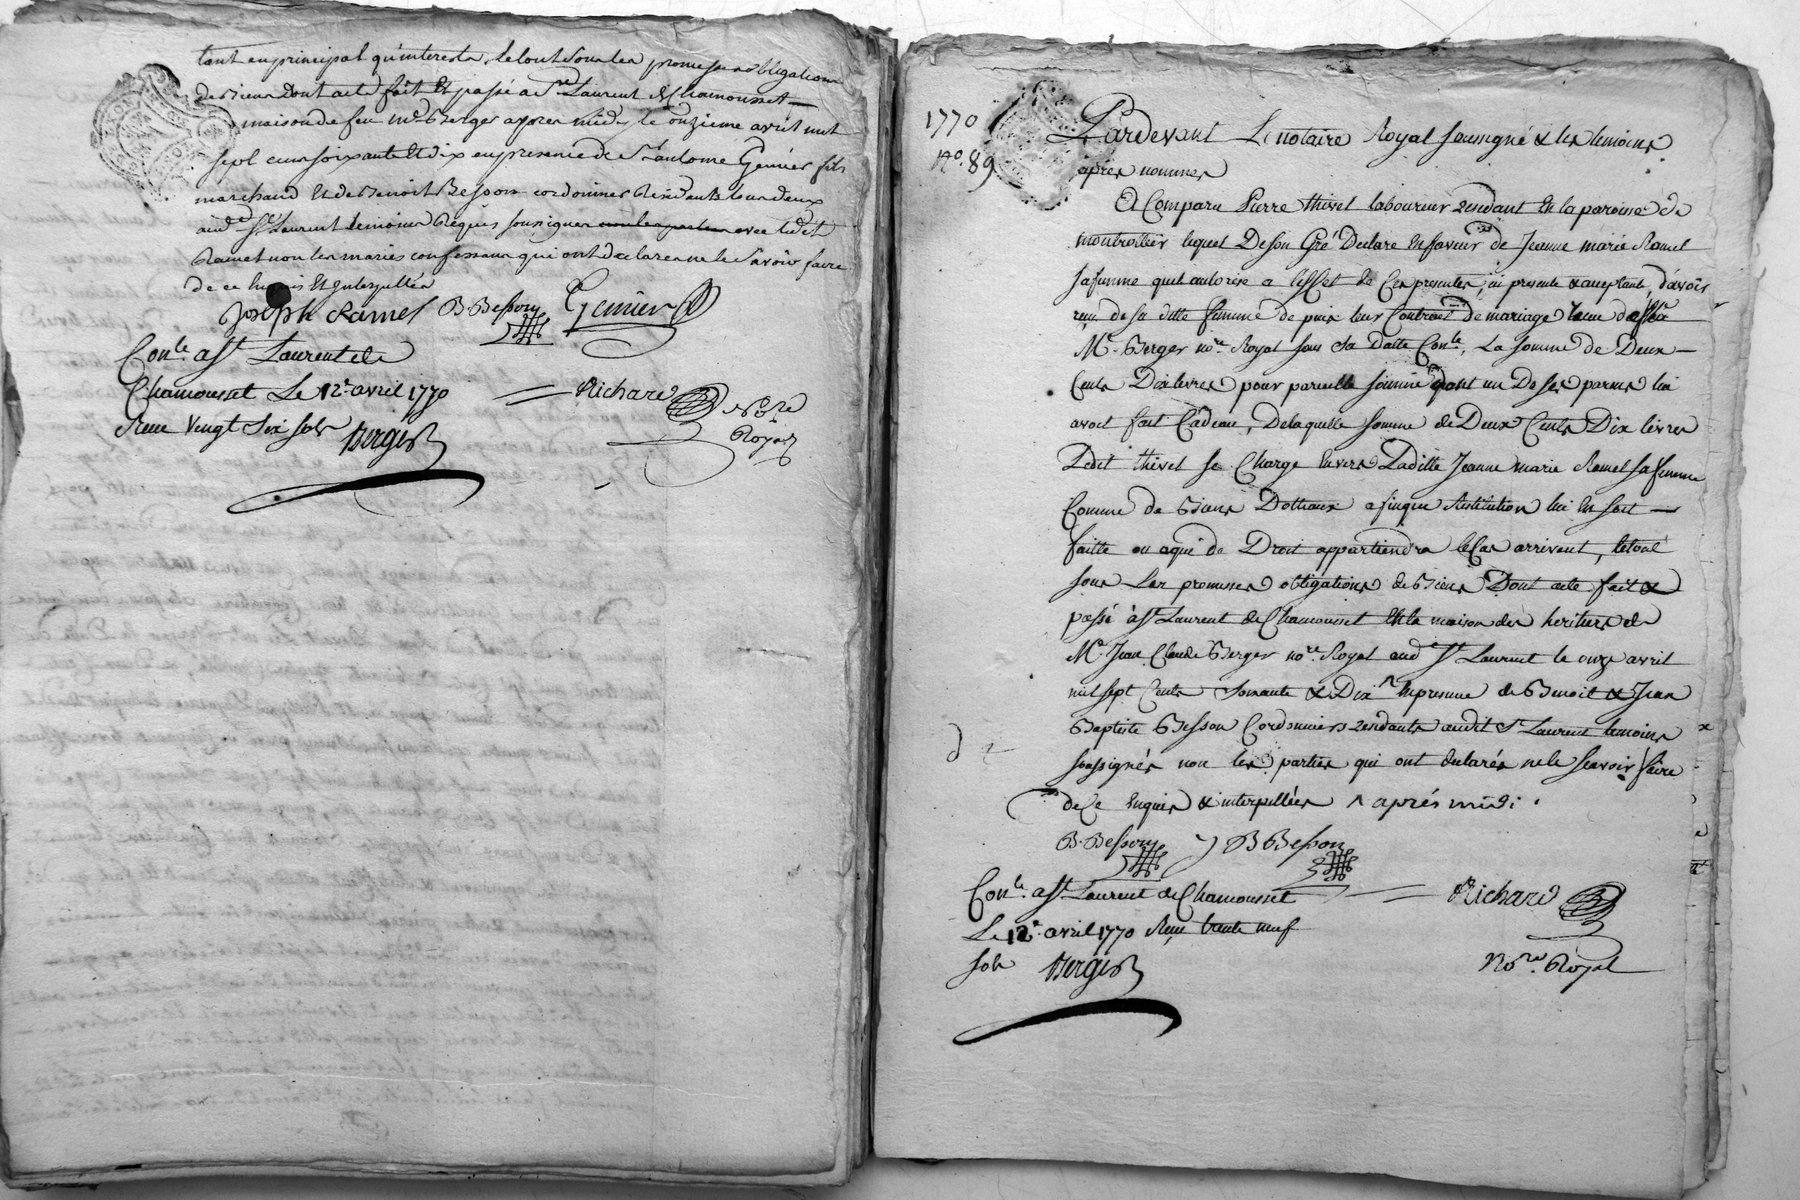 tant en principal qu'interests, le tout sous les promesses obligations
de biens dont acte fait Et passé a St Laurent de Chamousset
maison de feu Me Berger apres midy le onzieme avril mil
sept cent soixante Et dix en presence de Sr antoine Genier fils
marchand Et de Benoit Besson cordonnier Residents tous deux
aud. St Laurent temoins Requis soussignes avec ledit
Ramel non les mariés confessans qui ont declarer ne le Savoir faire
de ce Enquis Et interpellés
Joseph Ramel B. Besson Genier
Conle a St Laurent de
Chamousset Le 12e avril 1770 Richard Nore
Reçu Vingt Six sols Berger Royal
1770
No. 89
Pardevant Le notaire Royal soussigné & les temoins
apres nommes
A Comparu Pierre thivel laboureur residant En la paroisse de
montrottier lequel De son Gré Declare En faveur de Jeanne marie Ramel
sa femme qu'il autorise a l'effet de Ces presentes, ici presente & acceptante, d'avoir
reçu de sa ditte femme depuis leur Contract de mariage
Me. Berger nore Royal sous sa datte Conle, La somme de Deux
Cents Dix livres pour pareille somme dont un De ses parens lui
avoit fait Cadeau, De laquelle somme de Deux Cents Dix livres
Ledit thivel se Charge Envers Laditte Jeanne marie Ramel sa femme
Comme de biens Dottaux afinque Restitution lui En soit
faitte ou a qui de Droit appartiendra le Cas arrivant, le tout
sous Les promesses obligations de biens Dont acte fait &
passé à St Laurent de Chamousset En la maison des heritiers de
Me. Jean Claude Berger nore. Royal aud. St Laurent le onze avril
mil sept Cents Soixante & Dix ^ En presence de Benoit & Jean
Baptiste Besson Cordonniers residants audit St Laurent temoins
soussignés non les parties qui ont declarés ne le sçavoir faire
de Ce Enquis & interpellées ^ aprés midi.
B. Besson J B Besson
Conle a St Laurent de Chamousset Richard
Le 12e avril 1770 Reçu trente neuf
sols Berger Nore. Royal